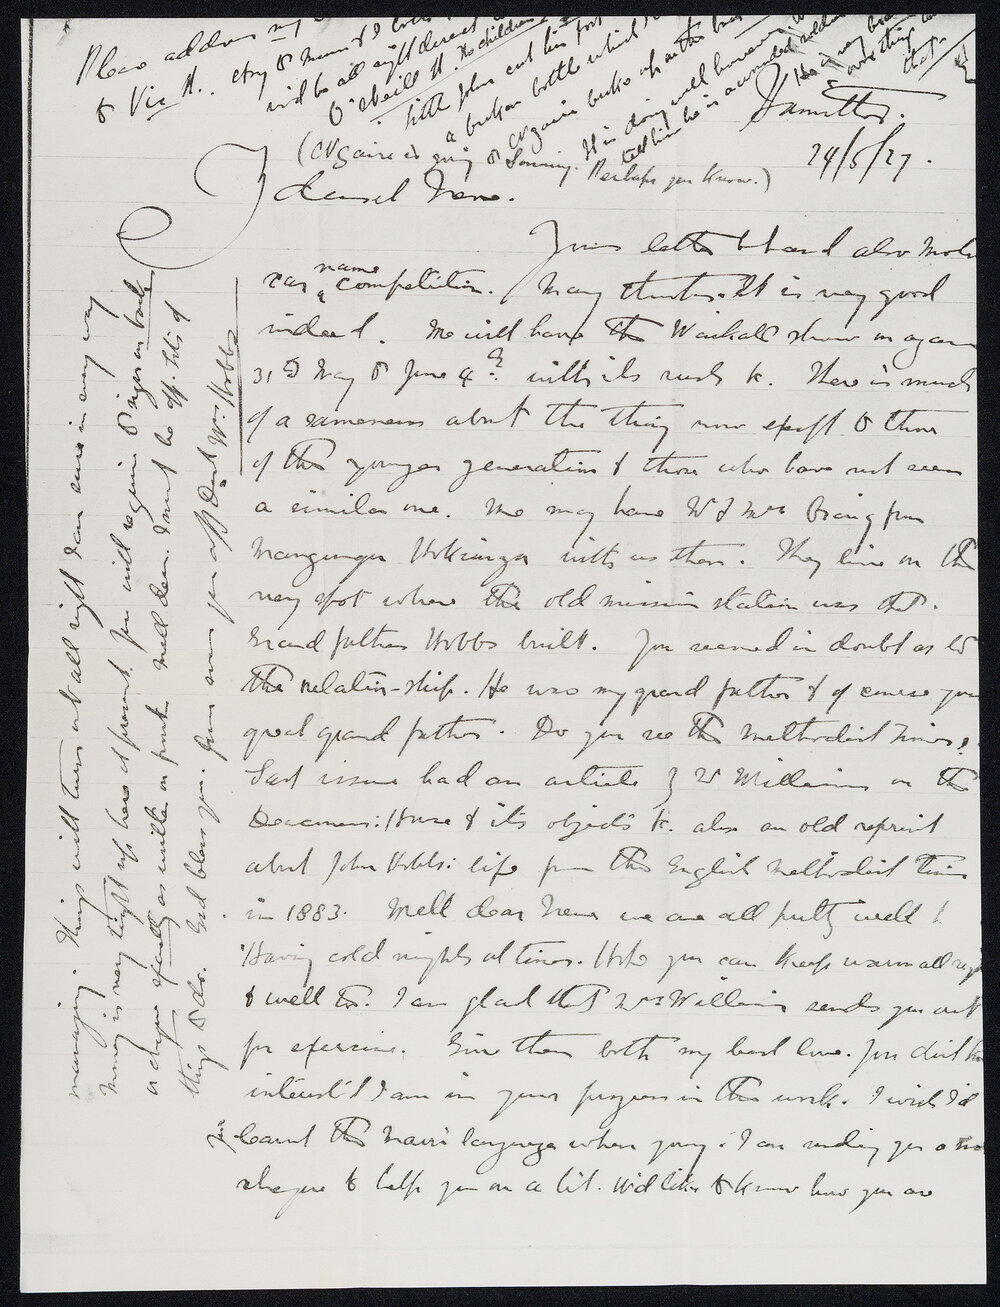 Please address my
to Vic St.
will be all right direct
O'Neill St. The children
little John cut his foot
a broken bottle which
Ngaire
He is doing well however
tell him he is a wounded soldier
He is very
(Ngaire is going to
Perhaps you know.)
Hamilton.
24/5/27.
Dearest Irene.
Your letter to hand also Motor
car name competition. Many thanks. It is very good
indeed. We will have the Waikato show on again
31st May to June 4th with its rush &c. There is much
of a sameness about the thing now except to those
of the younger generation & those who have not seen
a similar one. We may have Mr & Mrs from
Mangungu Hokianga with us then. They live on the
very spot where the old mission station was that
Grandfather Hobbs built. You seemed in doubt as to
the relation-ship. He was my grandfather & of course your
great grandfather. Do you see the Methodist Times?
Last issue had an article by Mr Williams on the
Deaconess: House & its objects &c. also an old reprint
about John Hobbs: life from the English Methodist Times
in 1883. Well dear Irene we are all pretty well &
Having cold nights at times. Hope you can keep warm all right
& well too. I am glad that Mrs Williams sends you out
for exercise. Give them both my best love. You don't know
interest I am in your progress in the work. I wish I'd
learnt the Maori language when young. I am sending you a
cheque to help you on a bit. We'd like to know how you are
managing. Things will turn out all right I am sure in every way
Money is very tight up here at present. You will require to
or cheque as written in front. Well dear I must be off. Lots of
things to do. God bless you. from your aff Dad Wm Hobbs